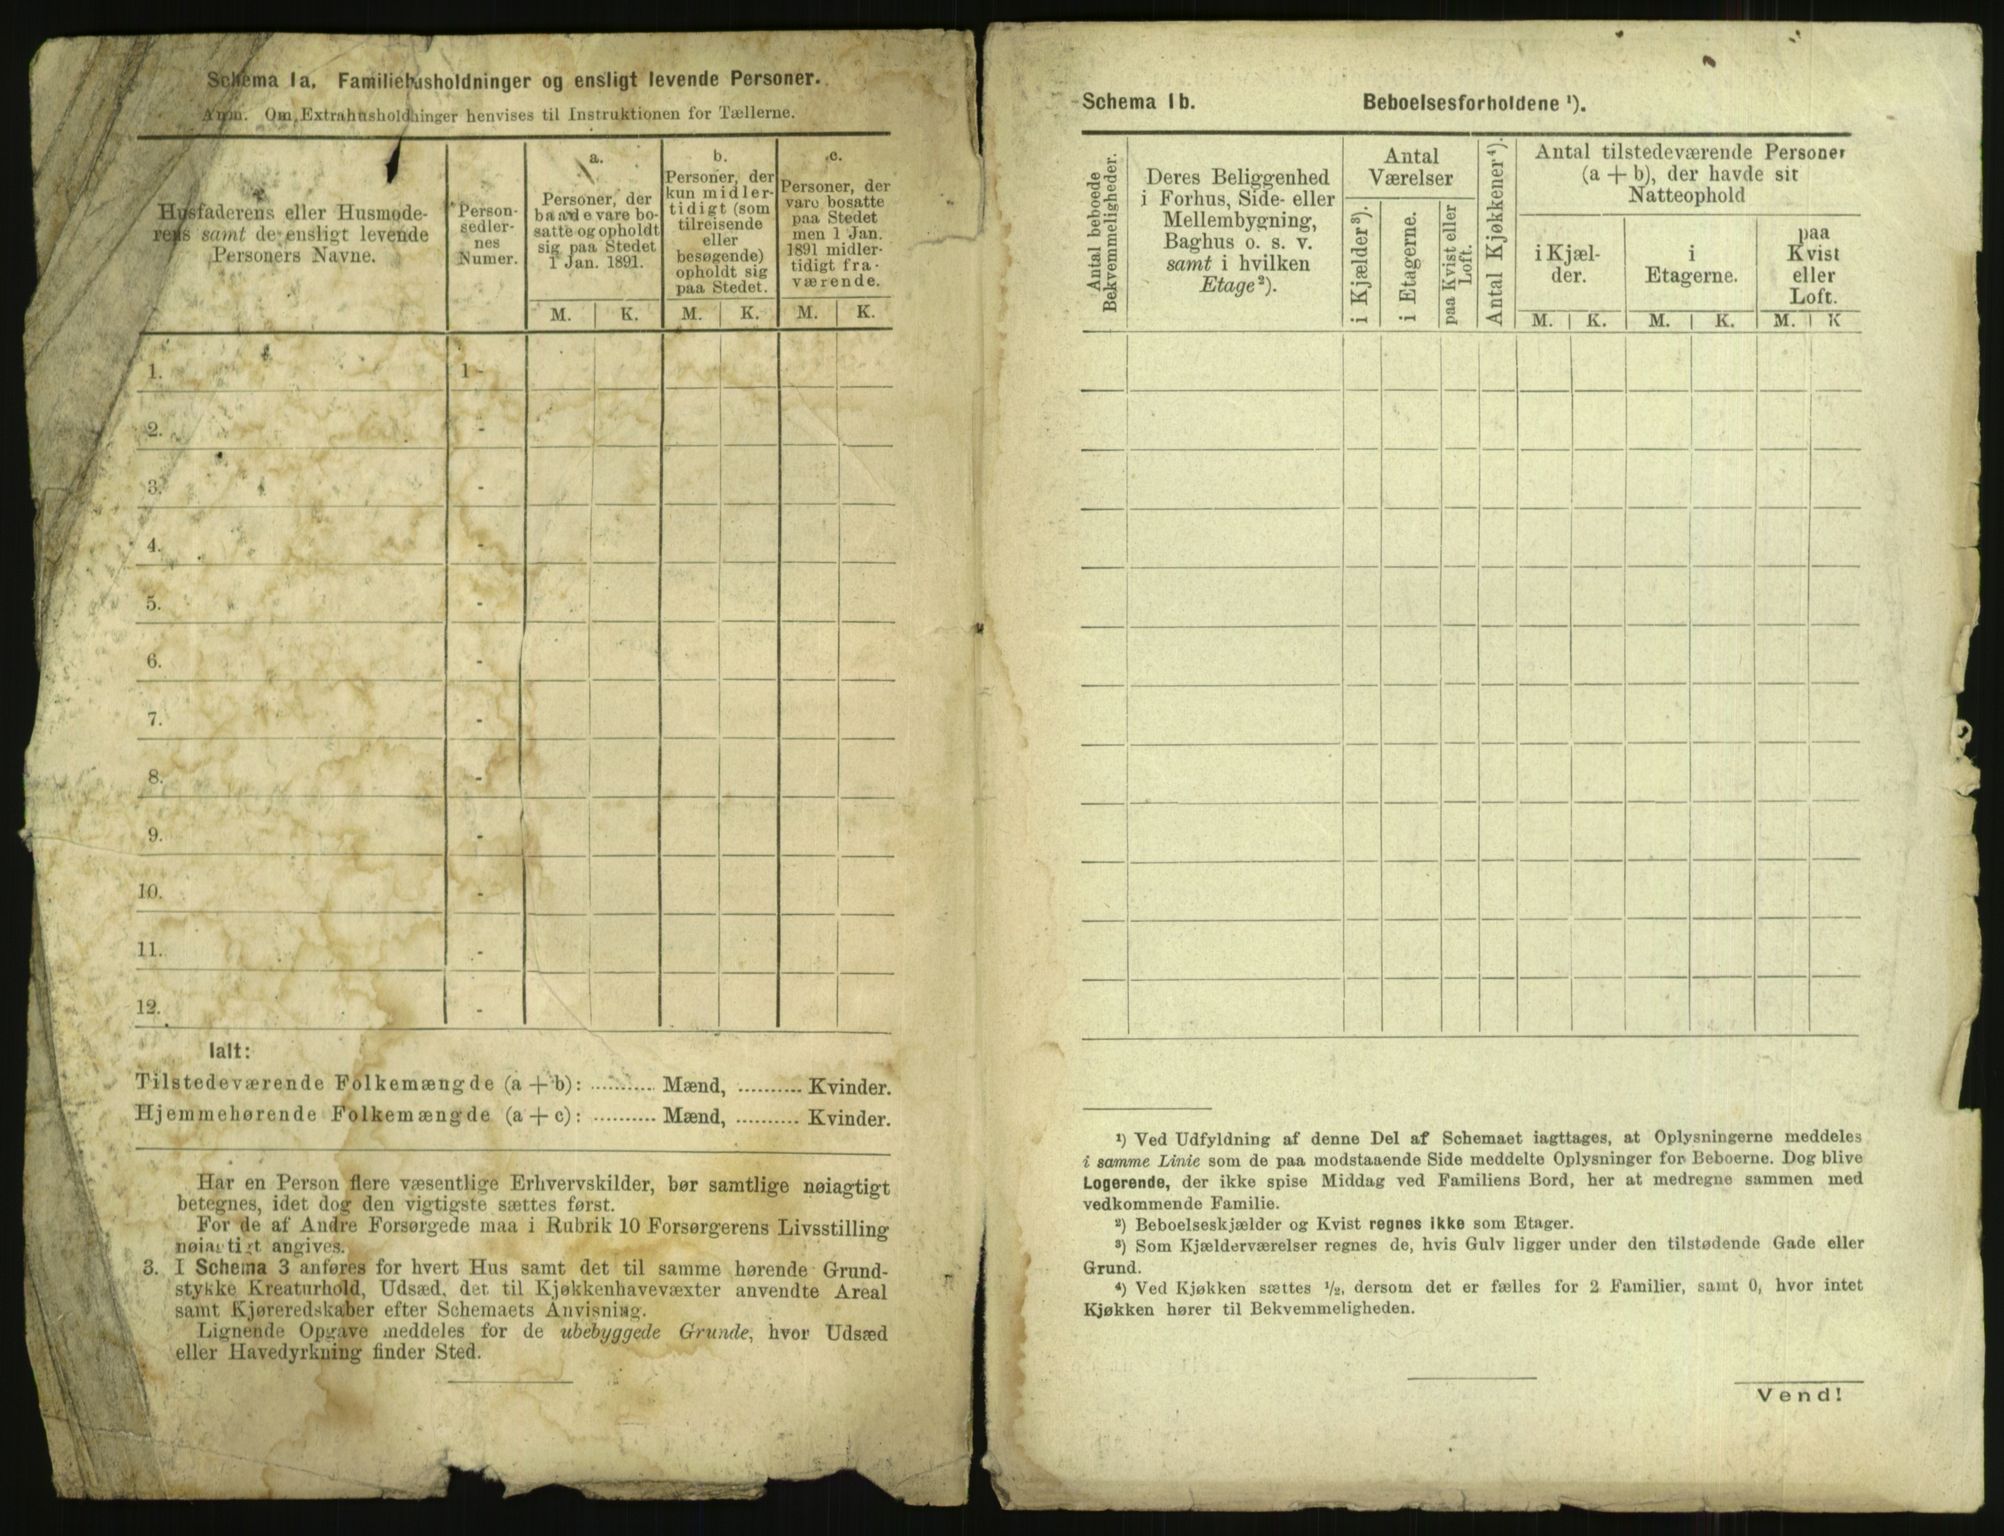 Schema 1a. Familiehusholdninger og ensligt levende Personer.
Anm. Om Extrahusholdninger henvises til Instruktionen for Tællerne.
Husfaderens eller Husmode-
rens samt de ensligt levende
Personers Navne.
Person-
sedler-
nes
Numer.
a.
Personer, der
baade vare bo-
satte og opholdt
sig paa Stedet
1 Jan. 1891.
b.
Personer, der
kun midler-
tidigt (som
tilreisende
eller
besøgende)
opholdt sig
paa Stedet.
c.
Personer, der
vare bosatte
paa Stedet
men 1 Jan.
1891 midler-
tidigt fra-
værende.
M. K. M. K. M. K.
1. 1 -
2. -
3. -
4. -
5. -
6. -
7. -
8. -
9. -
10. -
11. -
12. -
Ialt:
Tilstedeværende Folkemængde (a + b): .......... Mænd, .......... Kvinder.
Hjemmehørende Folkemængde (a + c): .......... Mænd, .......... Kvinder.
Har en Person flere væsentlige Erhvervskilder, bør samtlige nøiagtigt
betegnes, idet dog den vigtigste sættes først.
For de af Andre Forsørgede maa i Rubrik 10 Forsørgerens Livsstilling
nøiagtigt angives.
3. I Schema 3 anføres for hvert Hus samt det til samme hørende Grund-
stykke Kreaturhold, Udsæd, det til Kjøkkenhavevæxter anvendte Areal
samt Kjøreredskaber efter Schemaets Anvisning.
Lignende Opgave meddeles for de ubebyggede Grunde, hvor Udsæd
eller Havedyrkning finder Sted.
Schema 1b. Beboelsesforholdene ¹).
Antal beboede
Bekvemmeligheder.
Deres Beliggenhed
i Forhus, Side- eller
Mellembygning,
Baghus o. s. v.
samt i hvilken
Etage ²).
Antal
Værelser
i Kjælder ³).
i Etagerne.
paa Kvist eller
Loft.
Antal Kjøkkener ⁴).
Antal tilstedeværende Personer
(a + b), der havde sit
Natteophold
i Kjæl-
der.
i
Etagerne.
paa
Kvist
eller
Loft.
M. K. M. K. M. K
¹) Ved Udfyldning af denne Del af Schemaet iagttages, at Oplysningerne meddeles
i samme Linie som de paa modstaaende Side meddelte Oplysninger for Beboerne. Dog blive
Logerende, der ikke spise Middag ved Familiens Bord, her at medregne sammen med
vedkommende Familie.
²) Beboelseskjælder og Kvist regnes ikke som Etager.
³) Som Kjælderværelser regnes de, hvis Gulv ligger under den tilstødende Gade eller
Grund.
⁴) Ved Kjøkken sættes ½, dersom det er fælles for 2 Familier, samt 0, hvor intet
Kjøkken hører til Bekvemmeligheden.
Vend!